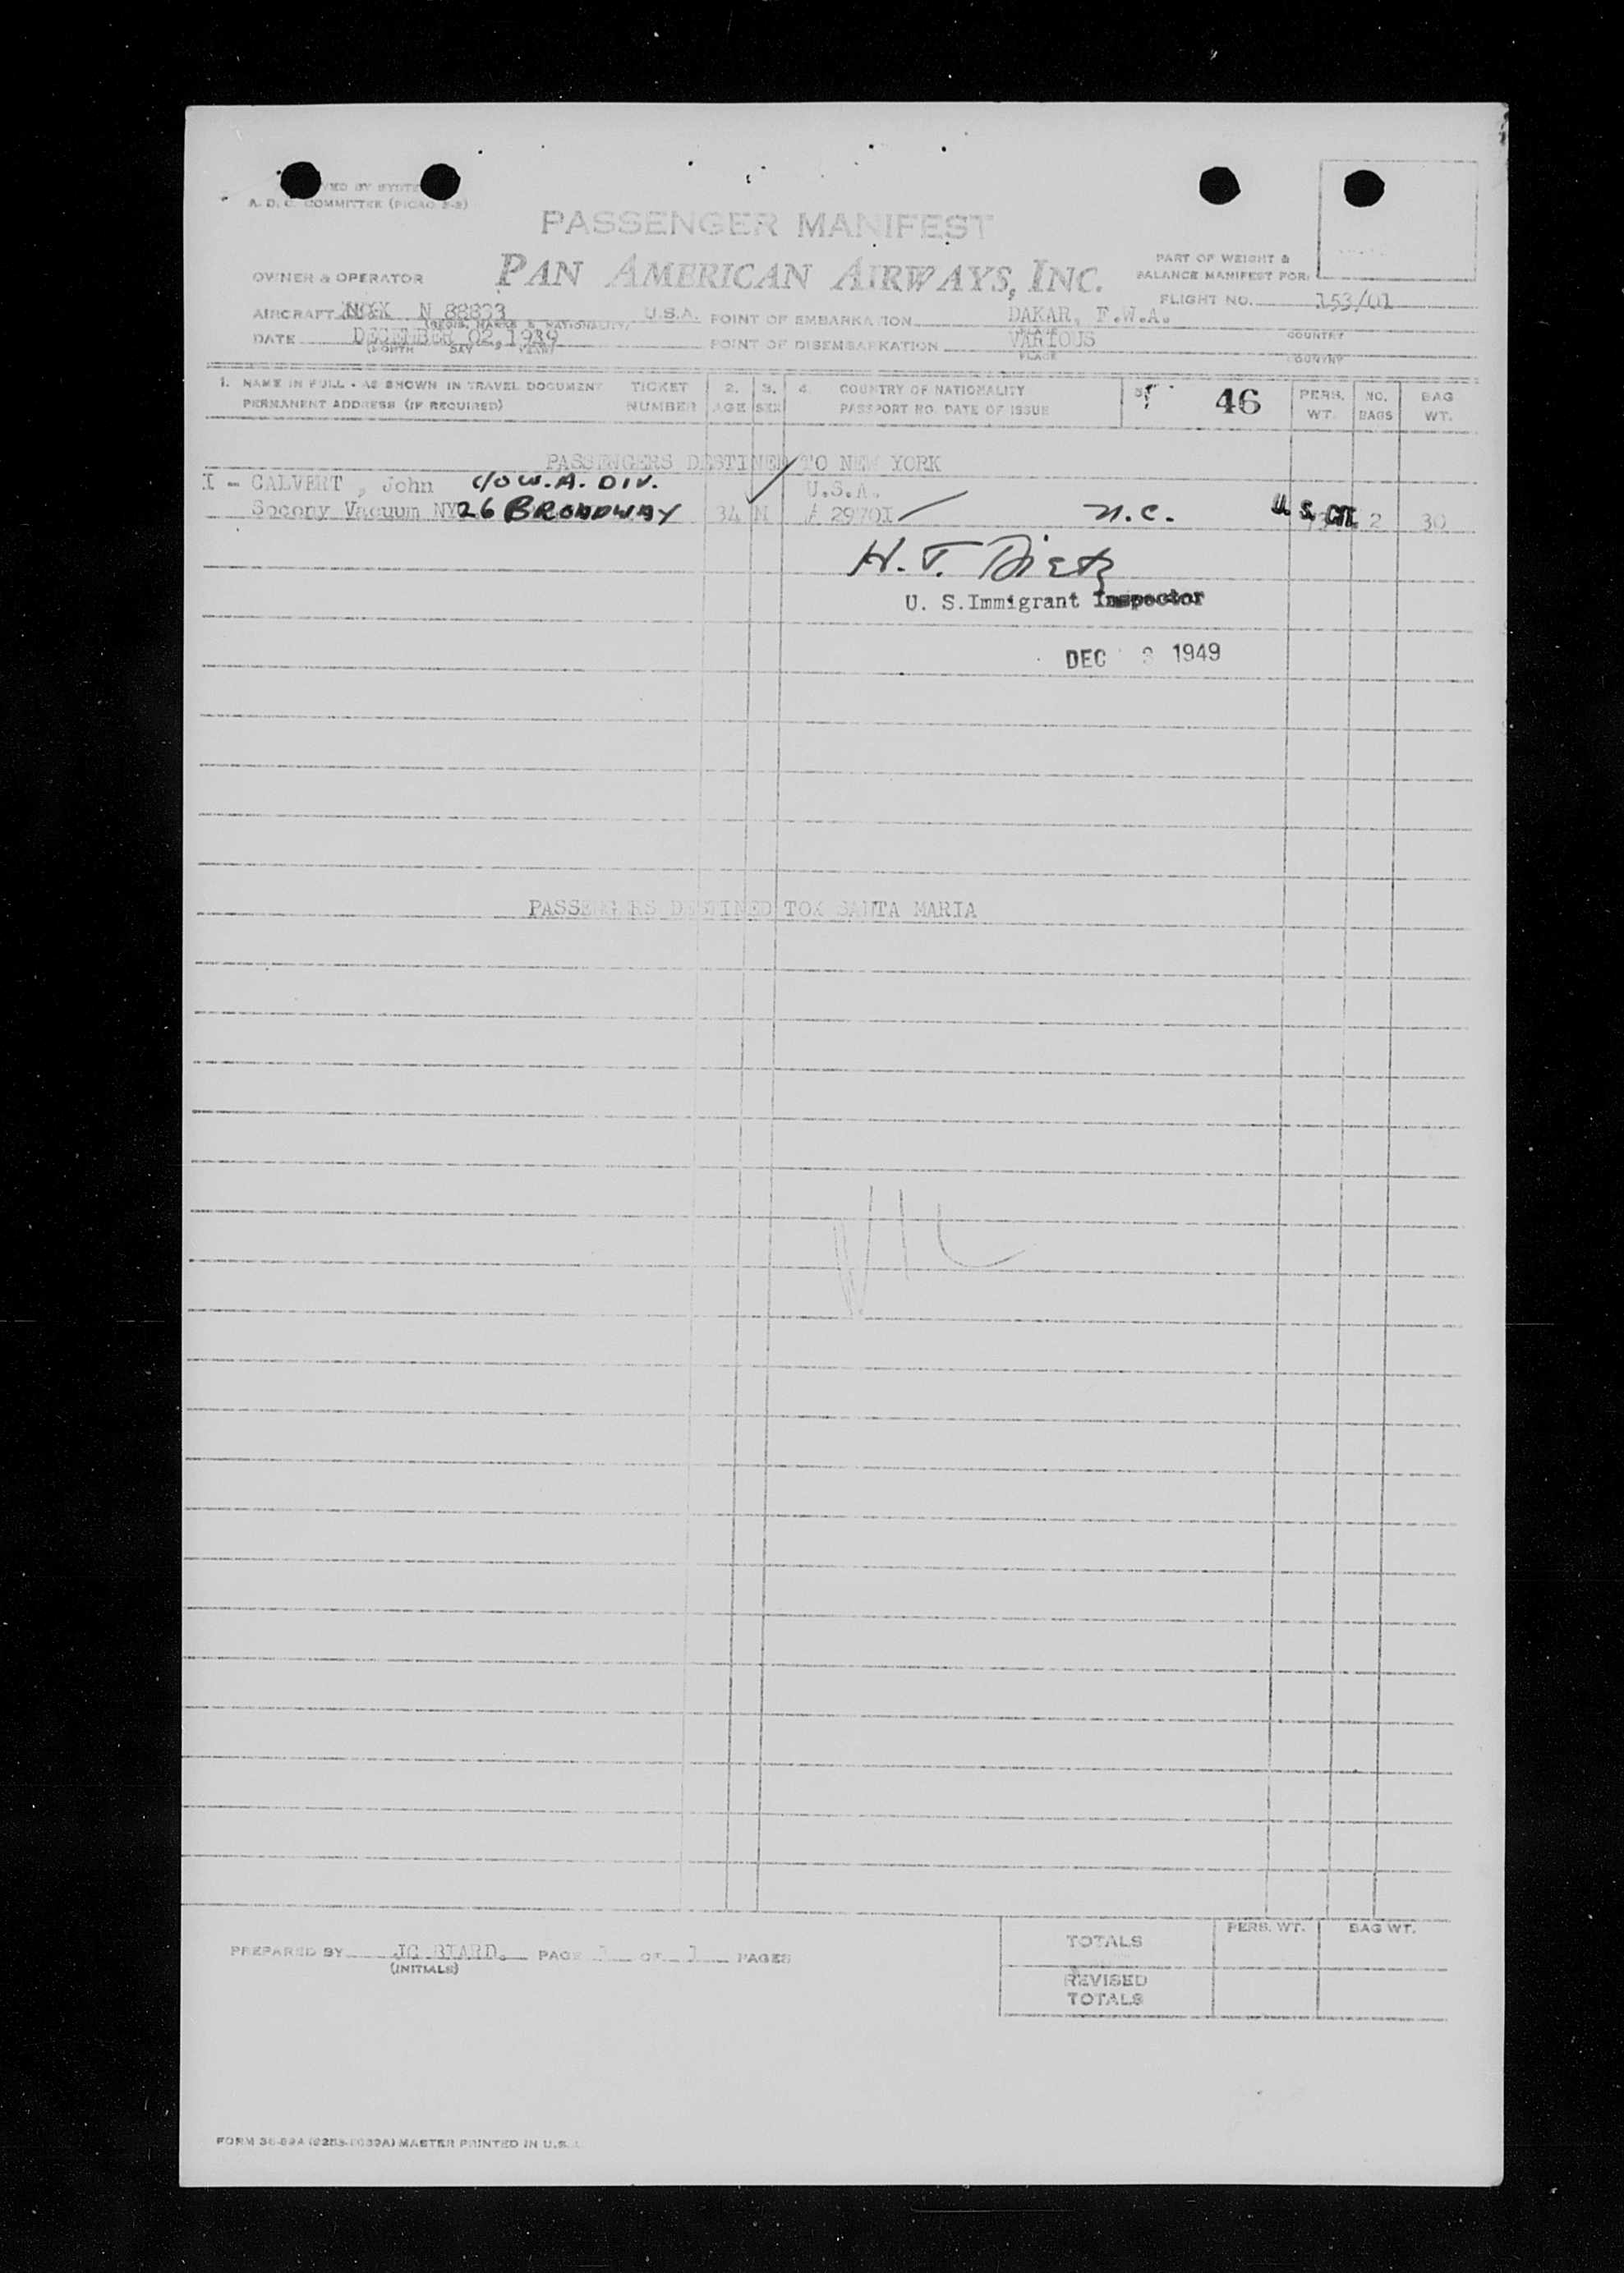 A. D. C. COMMITTEE (PICAO 2-2)
PASSENGER MANIFEST
OWNER & OPERATOR PAN AMERICAN AIRWAYS, INC.
PART OF WEIGHT &
BALANCE MANIFEST FOR:
FLIGHT NO. 153/01
AIRCRAFT N 88833 U.S.A. POINT OF EMBARKATION DAKAR, F.W.A.
(REGIS. MARKS & NATIONALITY) PLACE COUNTRY
DATE DECEMBER 02, 1939 POINT OF DISEMBARKATION VARIOUS
(MONTH DAY YEAR) PLACE COUNTRY
1. NAME IN FULL - AS SHOWN IN TRAVEL DOCUMENT TICKET 2. 3. 4. COUNTRY OF NATIONALITY 5. 46 PERS. NO. BAG
PERMANENT ADDRESS (IF REQUIRED) NUMBER AGE SEX PASSPORT NO. DATE OF ISSUE WT. BAGS WT.
PASSENGERS DESTINED TO NEW YORK
I - CALVERT , John C/O W.A. DIV. U.S.A.
Socony Vacuum NY 26 BROADWAY 34 M 29701 N.C. U. S. CIT. 2 30
H. T. Dietz
U. S. Immigrant Inspector
DEC 3 1949
PASSENGERS DESTINED TOX SANTA MARIA
PREPARED BY JC BIARD. PAGE 1 OF 1 PAGES
(INITIALS)
PERS. WT. BAG WT.
TOTALS
REVISED
TOTALS
MASTER PRINTED IN U.S.A.